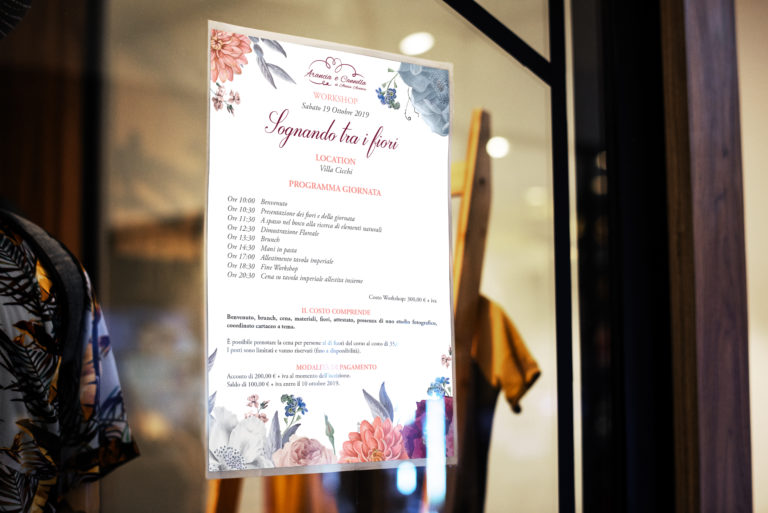 Arancia e Cannella
WORKSHOP
Sabato 19 Ottobre 2019
Sognando tra i fiori
LOCATION
Villa Cicchi
PROGRAMMA GIORNATA
Ore 10:00 Benvenuto
Ore 10:30 Presentazione dei fiori e della giornata
Ore 11:30 A spasso nel bosco alla ricerca di elementi naturali
Ore 12:30 Dimostrazione Floreale
Ore 13:30 Brunch
Ore 14:30 Mani in pasta
Ore 17:00 Allestimento tavola imperiale
Ore 18:30 Fine Workshop
Ore 20:30 Cena su tavola imperiale allestita insieme
Costo Workshop: 300,00 € + iva
IL COSTO COMPRENDE
Benvenuto, brunch, cena, materiali, fiori, attestato, presenza di uno studio fotografico,
coordinato cartaceo a tema.
È possibile prenotare la cena per persone al di fuori del corso al costo di 35
I posti sono limitati e vanno riservati (fino a disponibilità).
MODALITÀ DI PAGAMENTO
Acconto di 200,00 € + iva al momento dell'iscrizione.
Saldo di 100,00 € + iva entro il 10 ottobre 2019.